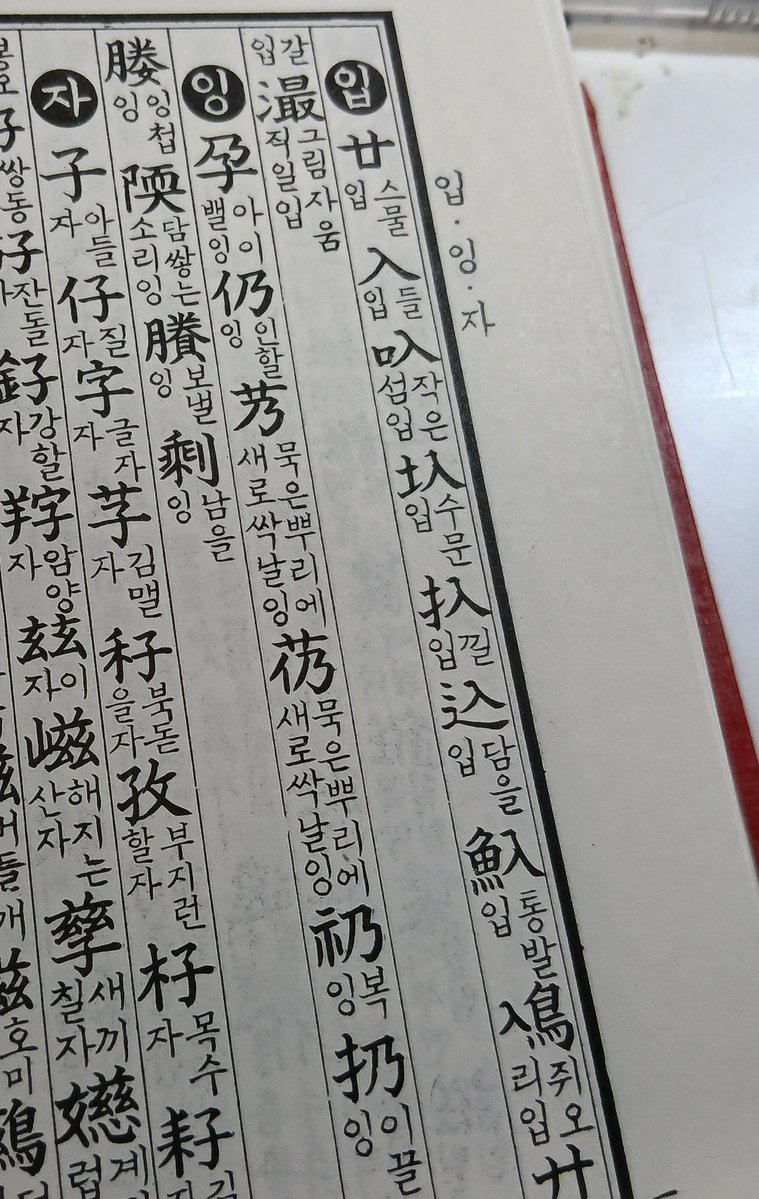 입·잉·자
입 廿 스물입 入 들입 叺 작은섬입 圦 수문입 扖 낄입 込 담을입 魞 통발입 鳰 쥐오리입 廿
갈입 그림자움직일입
잉 孕 아이밸잉 仍 인할잉 艿 묵은뿌리에새로싹날잉 芿 묵은뿌리에새로싹날잉 礽 복잉 扔 이끌잉
媵 잉첩잉 陾 담쌓는소리잉 賸 보낼잉 剩 남을잉
자 子 아들자 仔 질자 字 글자자 芓 김맬자 秄 북돋을자 孜 부지런할자 杍 목수자 耔 김
쌍동 잔돌 釨 강할자 암양자 玆 이자 嵫 해지는산자 孳 새끼칠자 嬨 계럽
버들개 호미